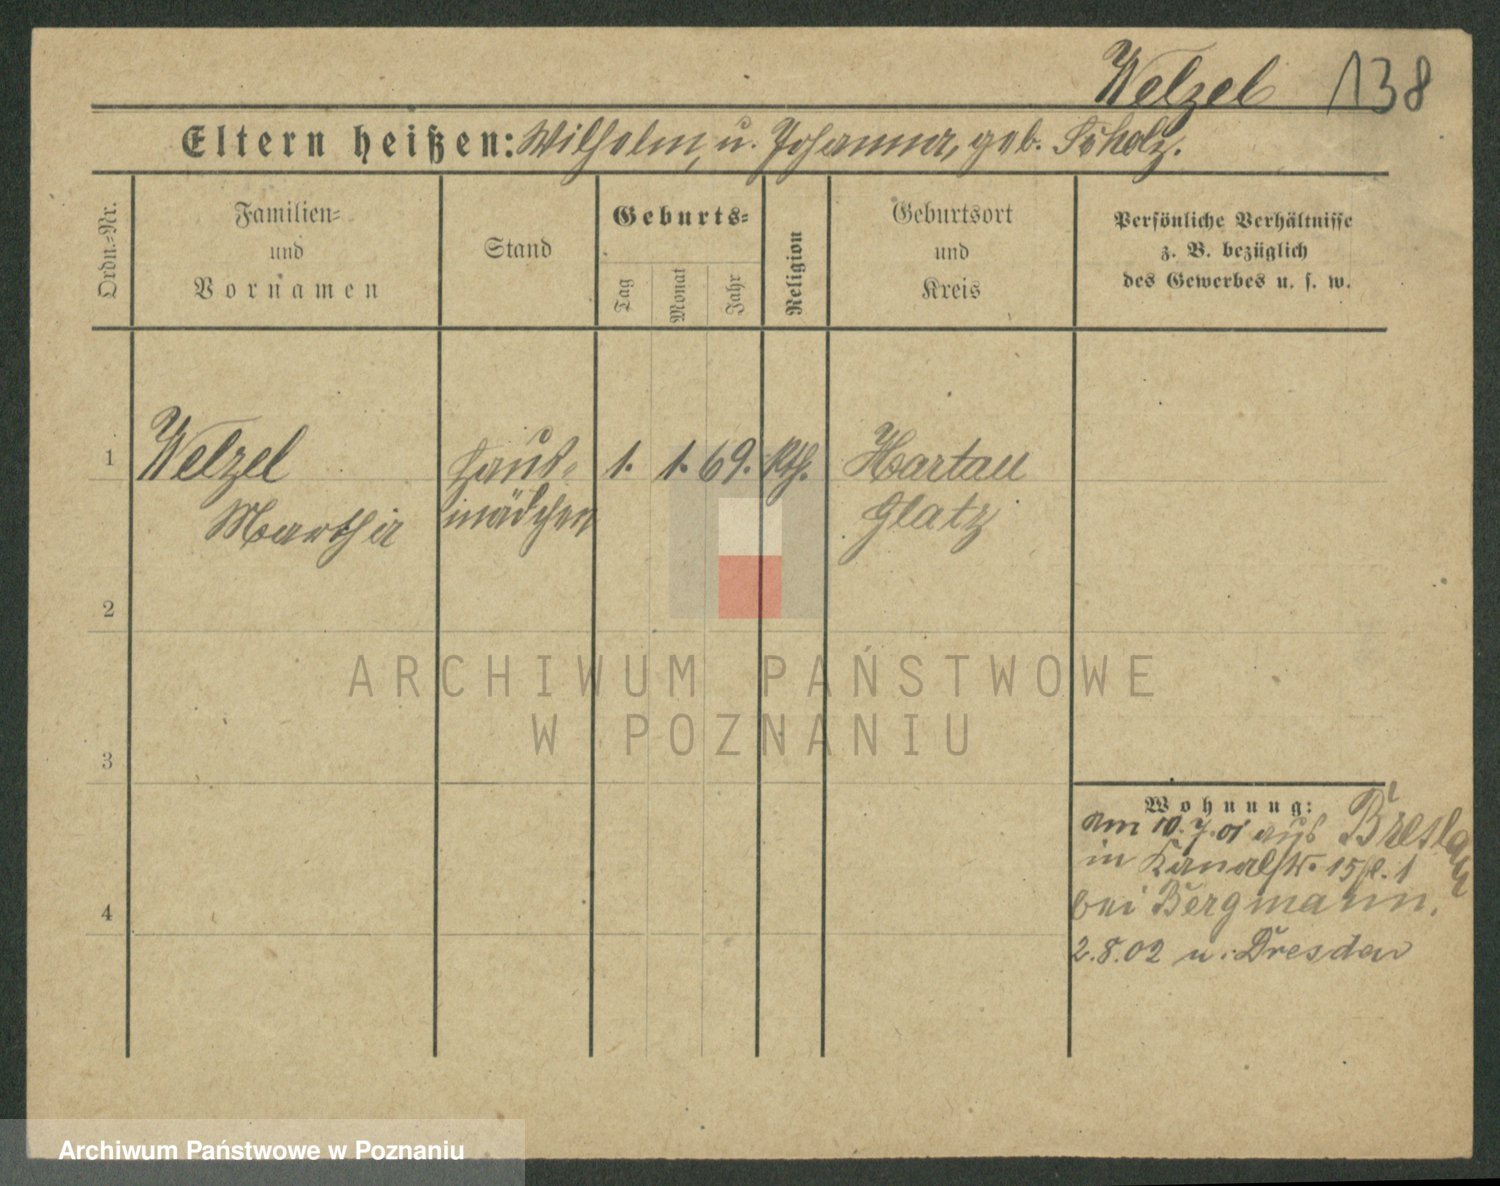 Welzel 138
Eltern heißen: Wilhelm, u. Johanna, geb. Scholz.
Ordn.=Nr.
Familien=
und
Vornamen
Stand
Geburts=
Tag
Monat
Jahr
Religion
Geburtsort
und
Kreis
Persönliche Verhältnisse
z. B. bezüglich
des Gewerbes u. s. w.
1 Welzel Haus= 1. 1. 69. kth. Hartau
Martha mädchen Glatz
2
3
4
Wohnung:
Am 10.7.01 aus Breslau
in Kanalstr. 15 pl. 1
bei Bergmann.
2.8.02 n. Dresden
ARCHIWUM PAŃSTWOWE
W POZNANIU
Archiwum Państwowe w Poznaniu